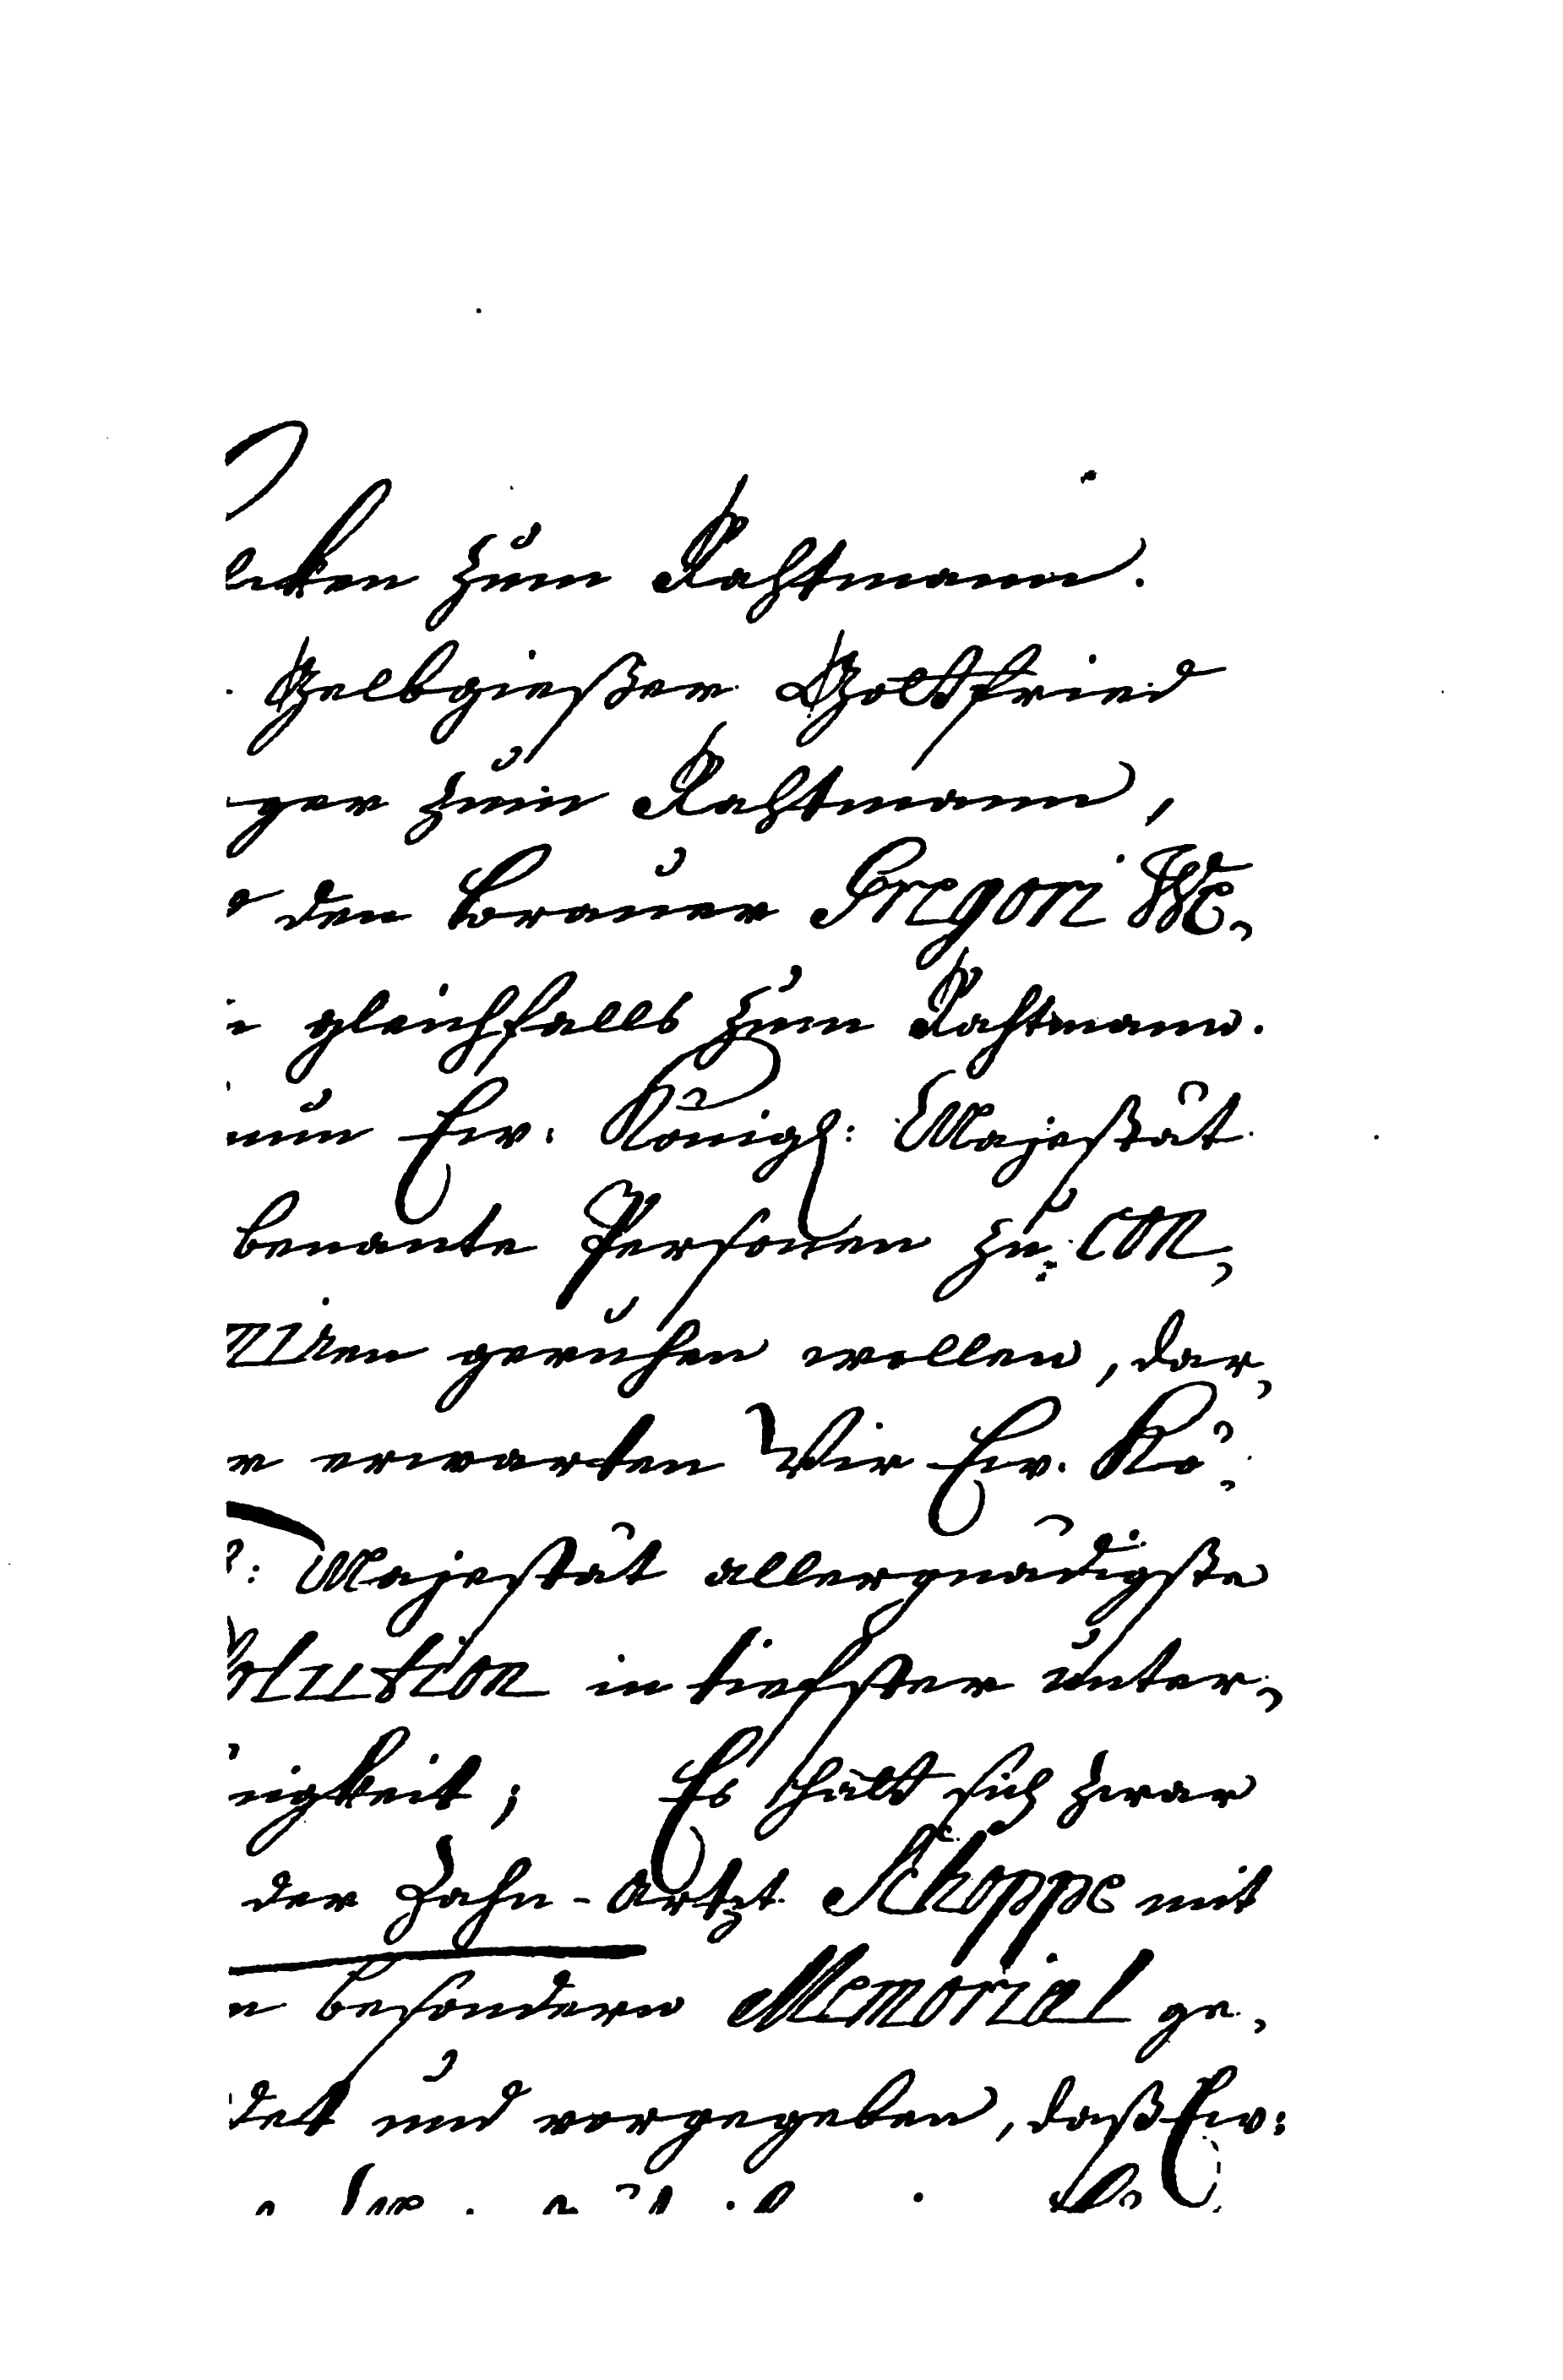 zum Rahtmann.
Gelbgießer Gottfried
ger zum Rahtmann,
den Brauer Gregori We,
gleichfalls zum Rahtmann.
nun Ew. Königl: Majestät
benante Personen zu con,
miren geruhen wollen, dar,
erwarten Wir Ew. Kö,
: Majestät allergnädigste
solution in tiefster unter,
nigkeit; Es hält sich zwar
der Zahn-Artzt Schoppe mit
besondern Memorial ge,
det und vorgegeben, daß Ew: